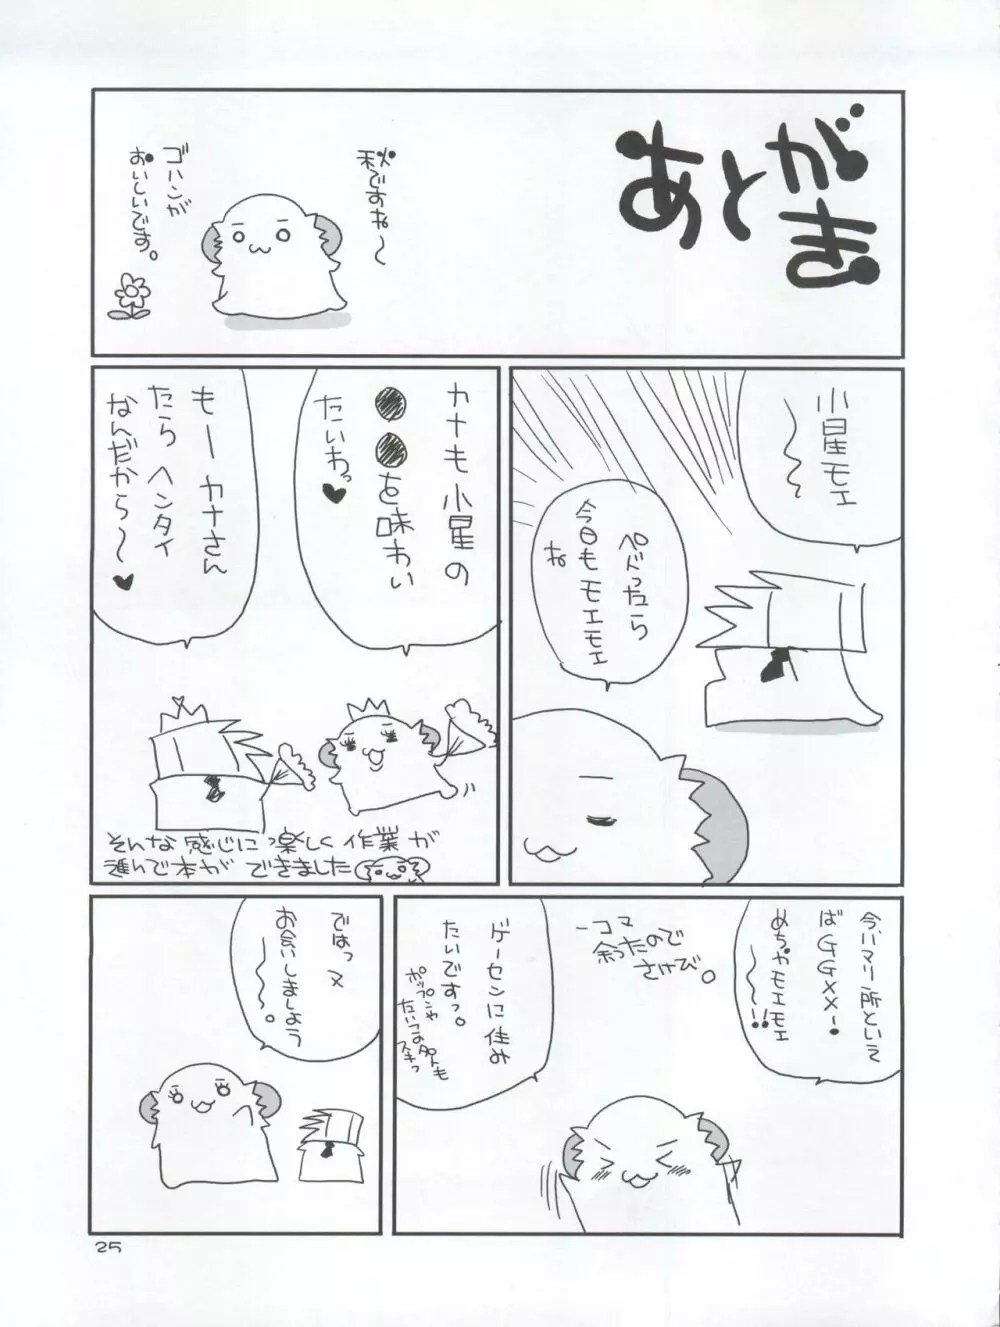 あとがき
秋ですね〜
ゴハンが
おいしいです。
小星モエ
〜〜
ペドったら
今日もモエモエ
ね
カナも小星の
●●を味わい
たいわっ♥
もーカナさん
たら ヘンタイ
なんだから〜♥
そんな感じに楽しく作業が
進んで本ができました
今ハマリ所といえ
ばGGXX！
めちゃモエモエ
〜〜!!
一コマ
余ったので
さけび。
ゲーセンに住み
たいですっ。
ポップンや
たいつよPartも
スキっ
ではっ又
お会いしましょう
〜〜。
25